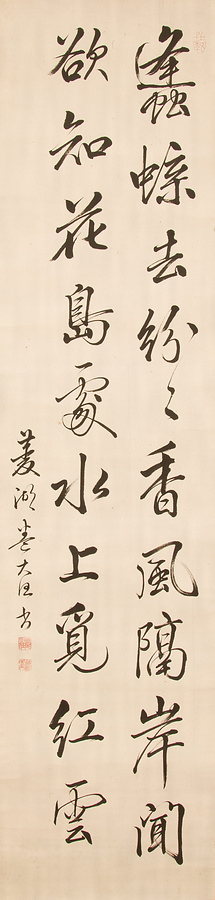 蠭蝶去紛〻香風隔岸聞
欲知花島處水上覓紅雲
菱湖卷大任書